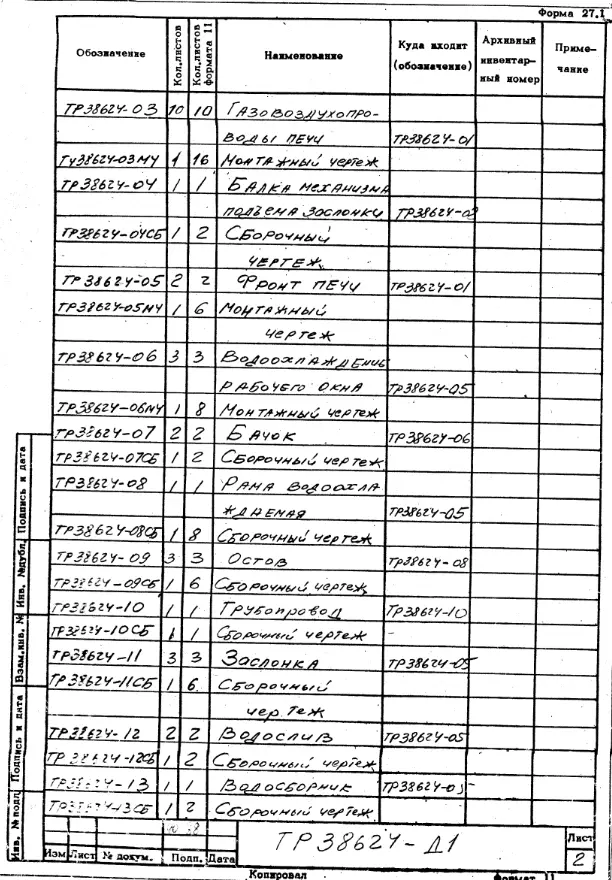 Форма 27.1
Обозначение
Кол.листов
Кол.листов формата 11
Наименование
Куда входит (обозначение)
Архивный инвентарный номер
Примечание
ТР38624-03 10 10 Газовоздухопро-
воды печи ТР38624-01
ТУ38624-03МЧ 1 16 Монтажный чертеж
ТР38624-04 1 1 Балка механизма
подъема заслонки ТР38624-03
ТР38624-04СБ 1 2 Сборочный
чертеж
ТР38624-05 2 2 Фронт печи ТР38624-01
ТР38624-05МЧ 1 6 Монтажный
чертеж
ТР38624-06 3 3 Водоохлаждение
рабочего окна ТР38624-05
ТР38624-06МЧ 1 8 Монтажный чертеж
ТР38624-07 2 2 Бачок ТР38624-06
ТР38624-07СБ 1 2 Сборочный чертеж
ТР38624-08 1 1 Рама водоохла
ждаемая ТР38624-05
ТР38624-08СБ 1 8 Сборочный чертеж
ТР38624-09 3 3 Остов ТР38624-08
ТР38624-09СБ 1 6 Сборочный чертеж
ТР38624-10 1 1 Трубопровод ТР38624-10
ТР38624-10СБ 1 1 Сборочный чертеж -
ТР38624-11 3 3 Заслонка ТР38624-05
ТР38624-11СБ 1 6 Сборочный
чертеж
ТР38624-12 2 2 Водослив ТР38624-05
ТР38624-12СБ 1 2 Сборочный чертеж
ТР38624-13 1 1 Водосборник ТР38624-05
ТР38624-13СБ 1 2 Сборочный чертеж
Подпись и дата
Инв. №дубл.
Взам.инв. №
Подпись и дата
Инв. №подл
Изм Лист № докум. Подп. Дата
ТР38624-Д1
Лист
2
Копировал
Формат 11